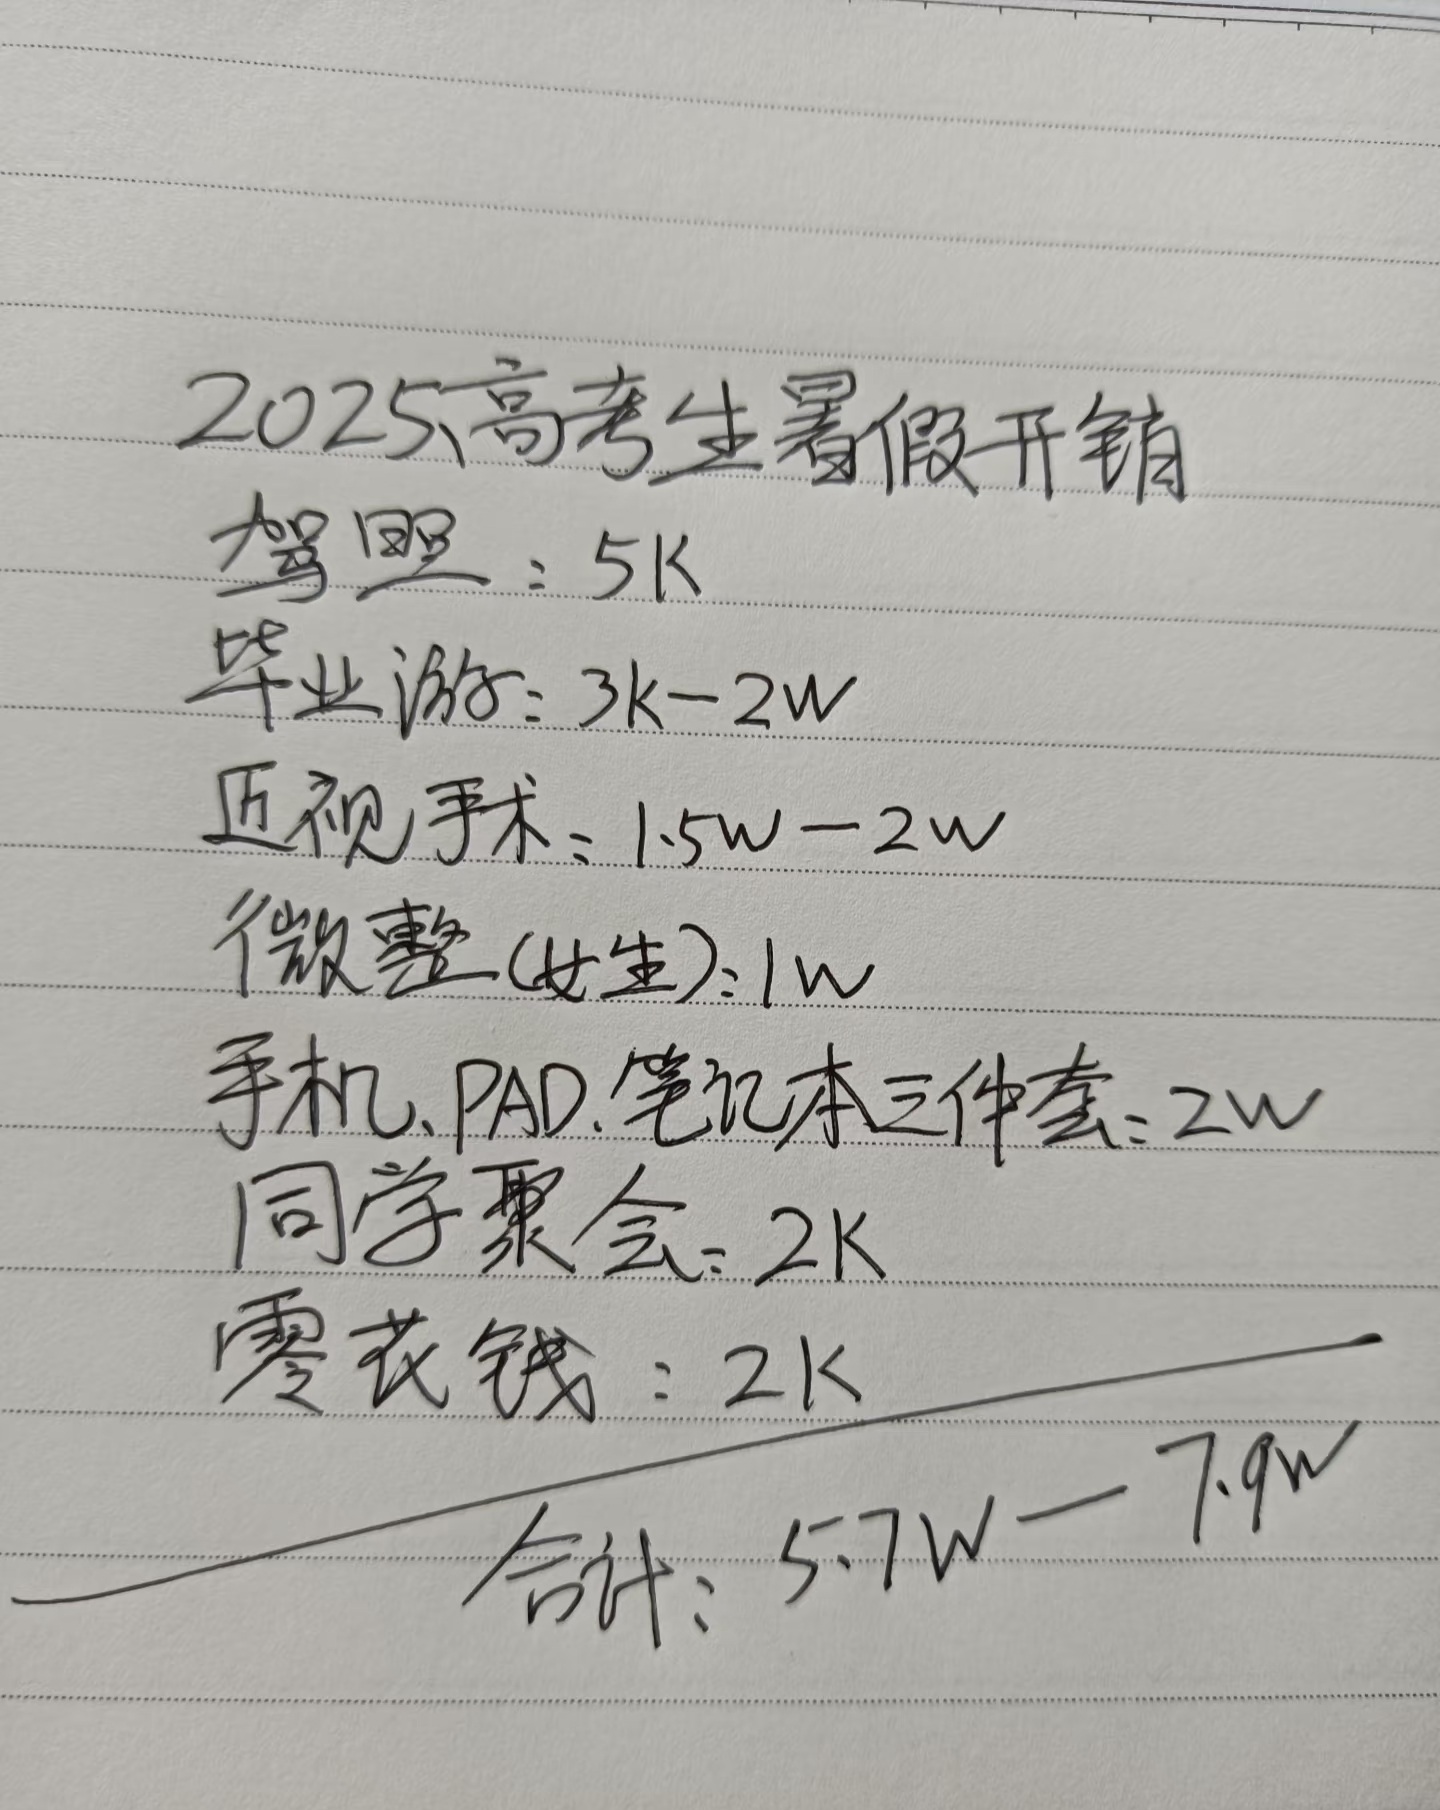 2025高考生暑假开销
驾照：5K
毕业游：3K-2W
近视手术：1.5W-2W
微整(女生)：1W
手机、PAD、笔记本三件套：2W
同学聚会：2K
零花钱：2K
合计：5.7W-7.9W